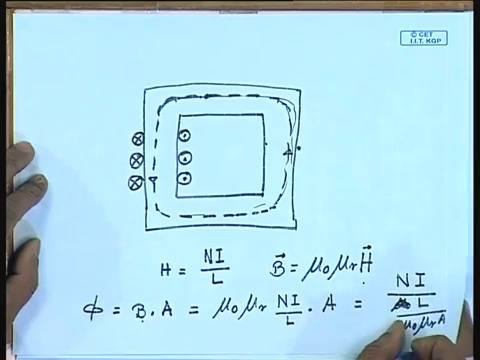 © CET
I.I.T. KGP
H = NI/L    B⃗ = μ₀μᵣH⃗
ϕ = B.A = μ₀μᵣ NI/L . A = NI/(L/μ₀μᵣA)